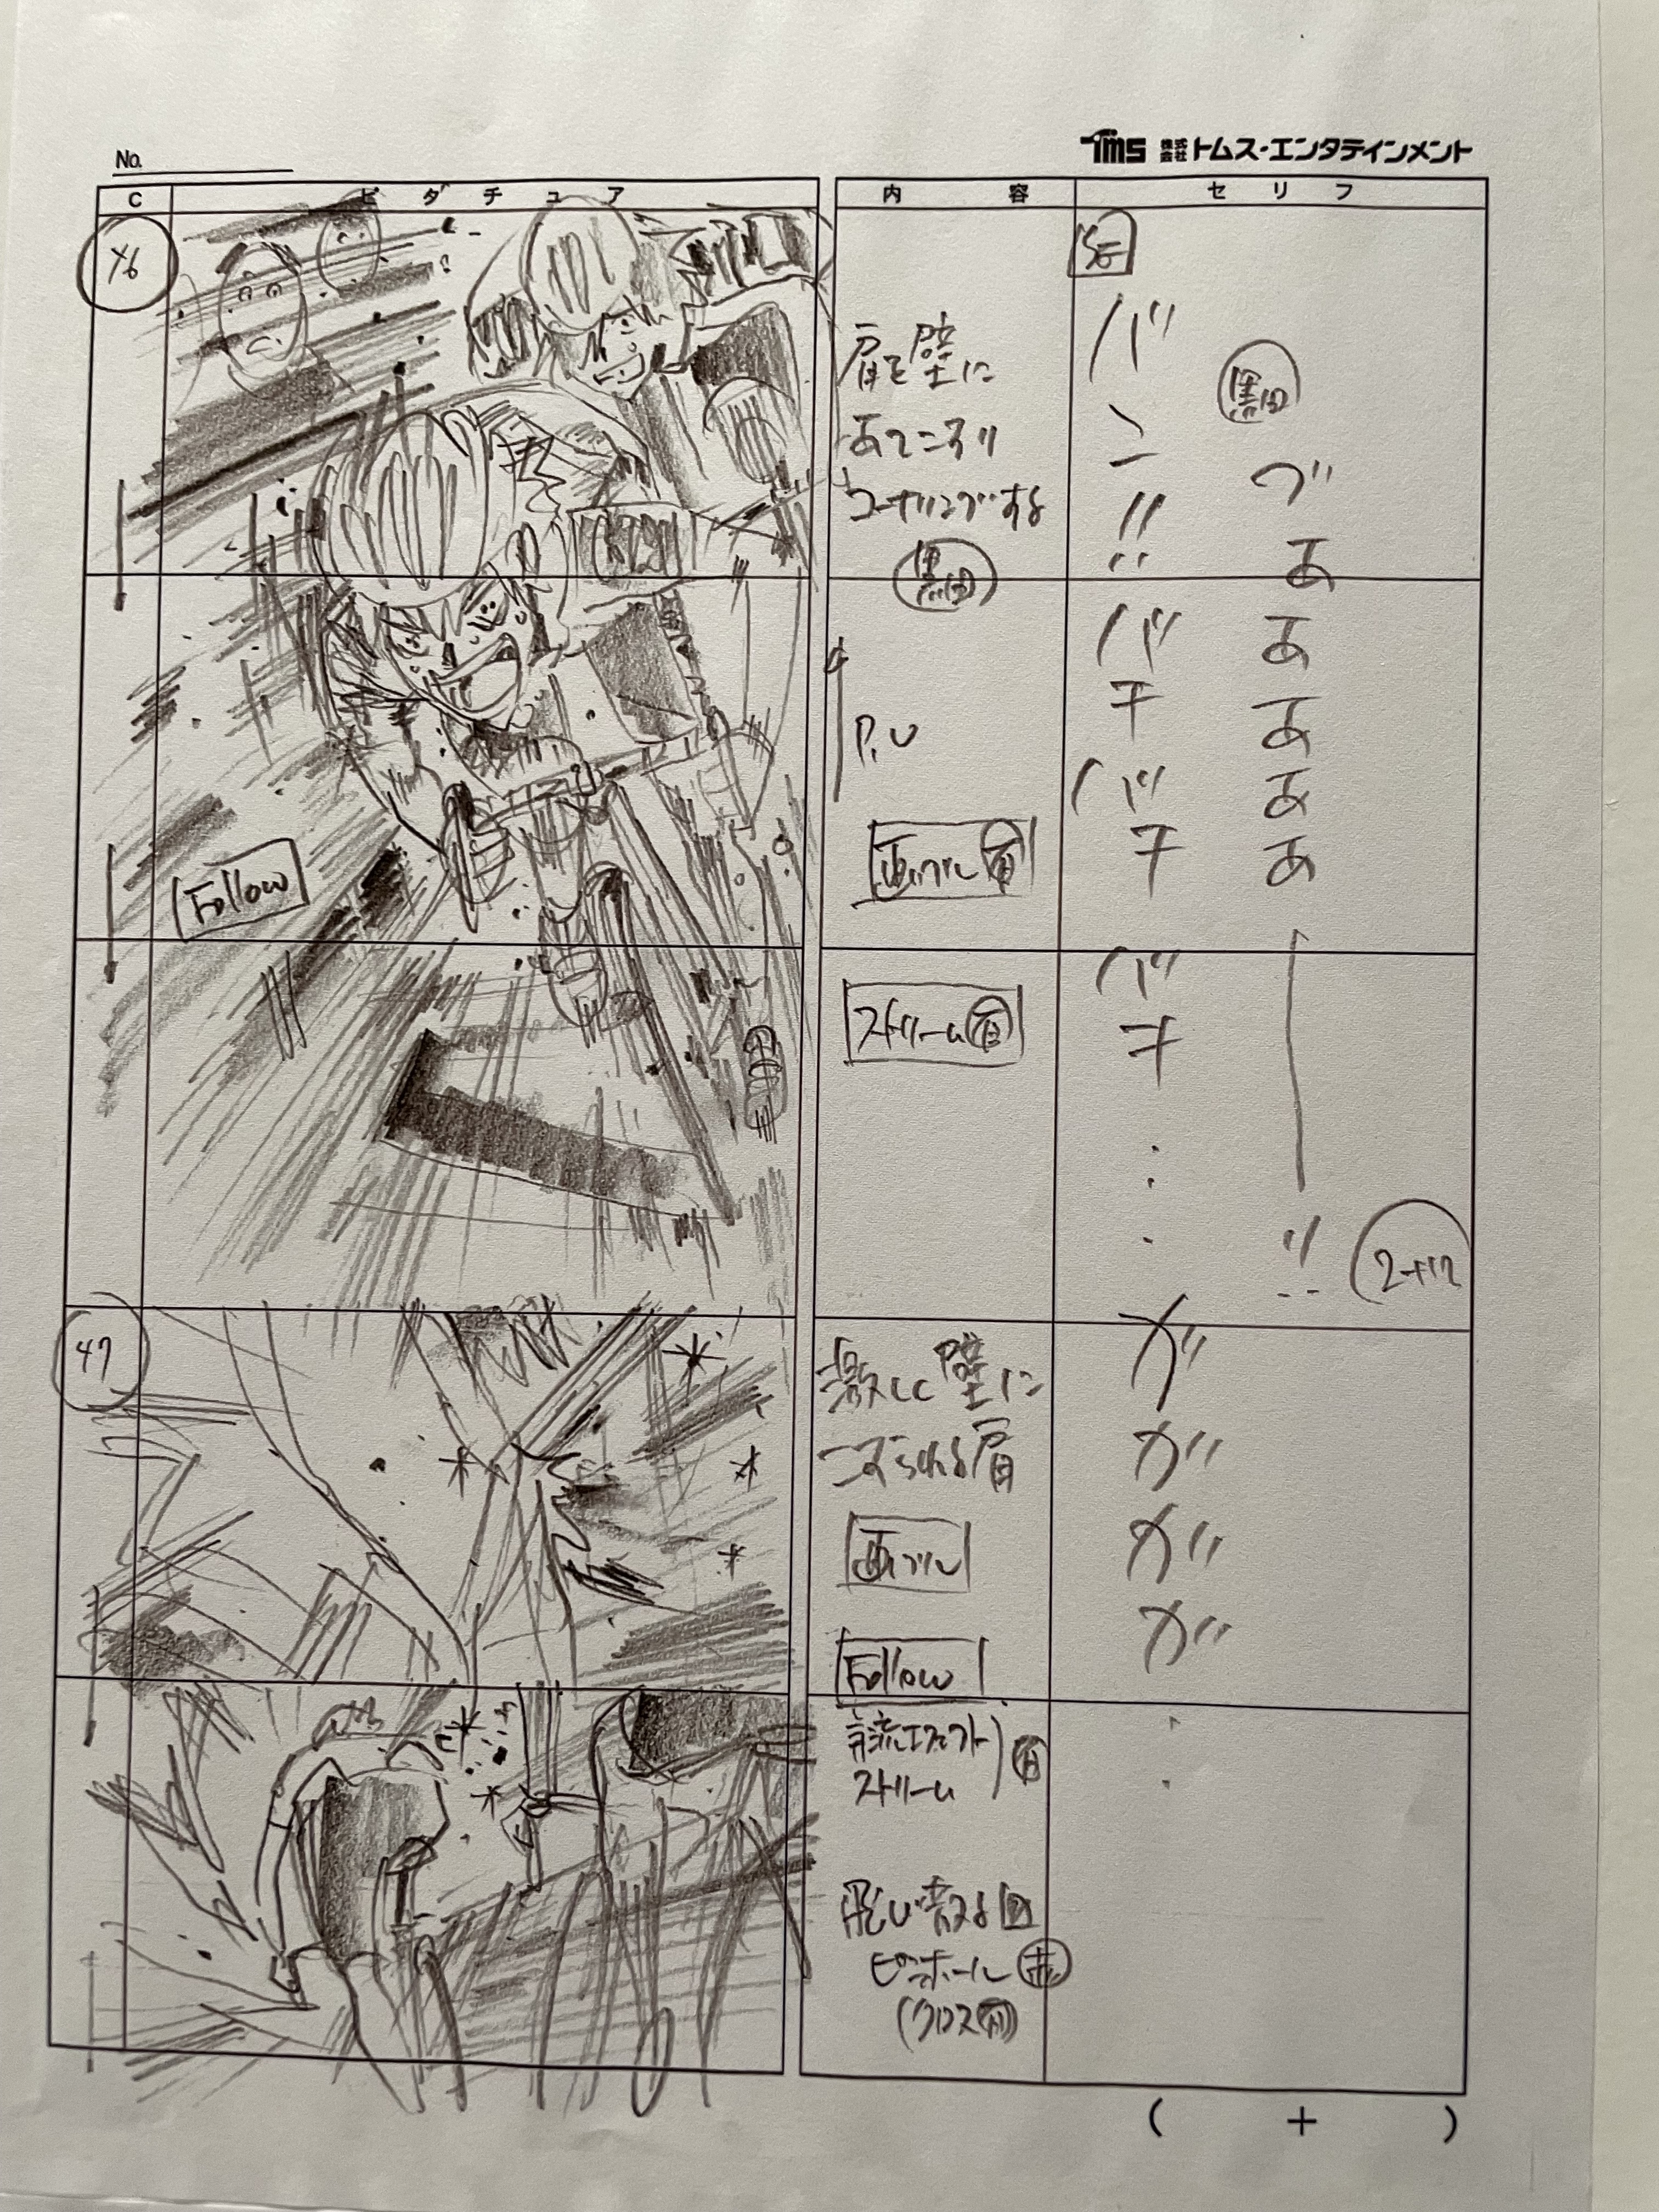 No.
TMS 株式会社 トムス・エンタテインメント
C
ピクチュア
内容
セリフ
46
肩を壁に
あてこすり
コーナリングする
黒田
P.U
画ブレ 有
Follow
ストリーム 有
SE
バン!!
バチバチ
バチ…
黒田
ぐああああああ
ー!!
2+12
47
激しく壁に
こすられる肩
画ブレ
Follow
ストリーム
有
飛び散る
ピンホール
ガガガガ
( + )